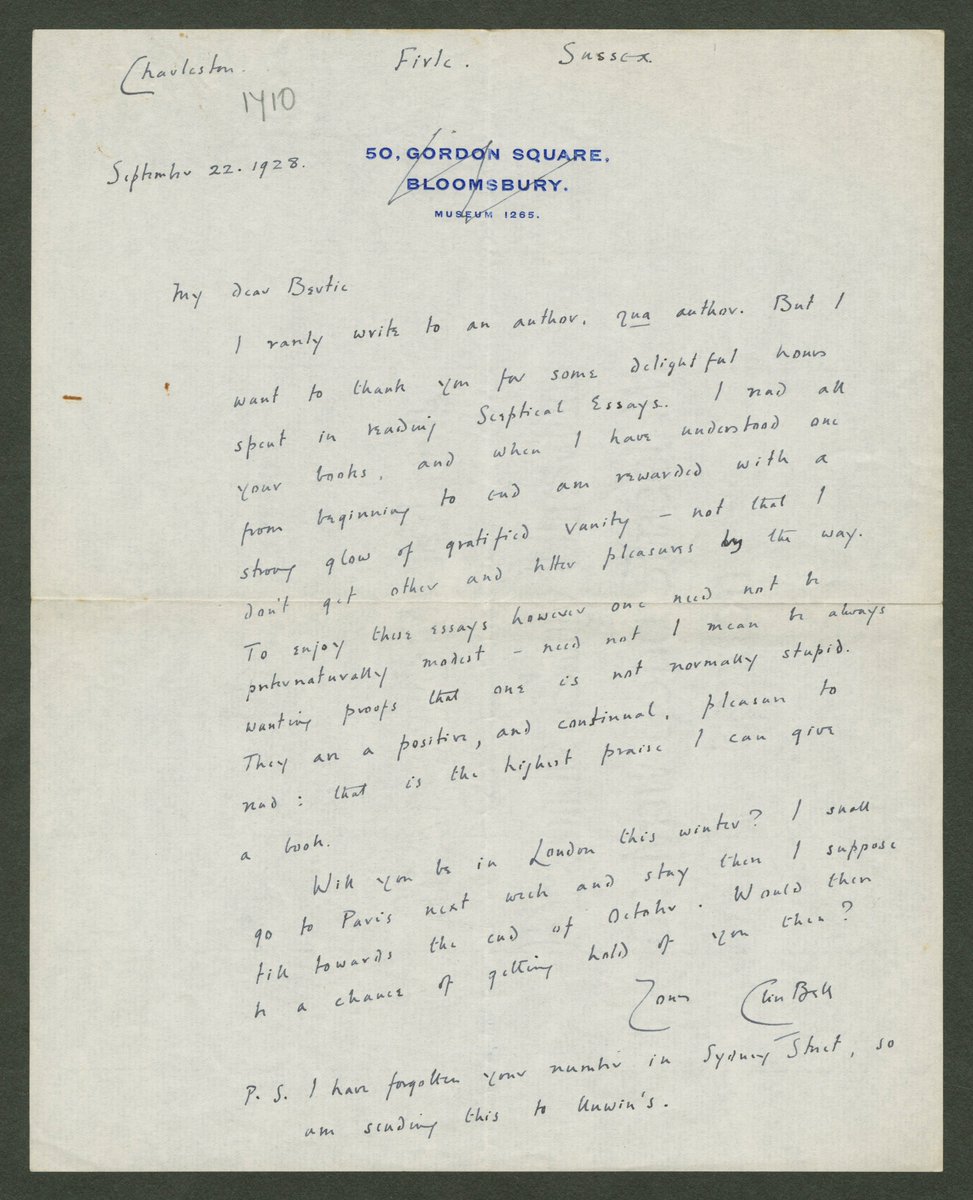 Charleston. Firle. Sussex.
1710
September 22. 1928.
50, GORDON SQUARE,
BLOOMSBURY.
MUSEUM 1265.
My dear Bertie
I rarely write to an author, qua author. But I
want to thank you for some delightful hours
spent in reading Sceptical Essays. I read all
your books, and when I have understood one
from beginning to end am rewarded with a
strong glow of gratified vanity – not that I
don't get other and better pleasures by the way.
To enjoy these essays however one need not be
preternaturally modest – need not I mean be always
wanting proofs that one is not normally stupid.
They are a positive, and continual, pleasure to
read: that is the highest praise I can give
a book.
Will you be in London this winter? I shall
go to Paris next week and stay there I suppose
till towards the end of October. Would there
be a chance of getting hold of you then?
Yours Clive Bell
P.S. I have forgotten your number in Sydney Street, so
am sending this to Unwin's.